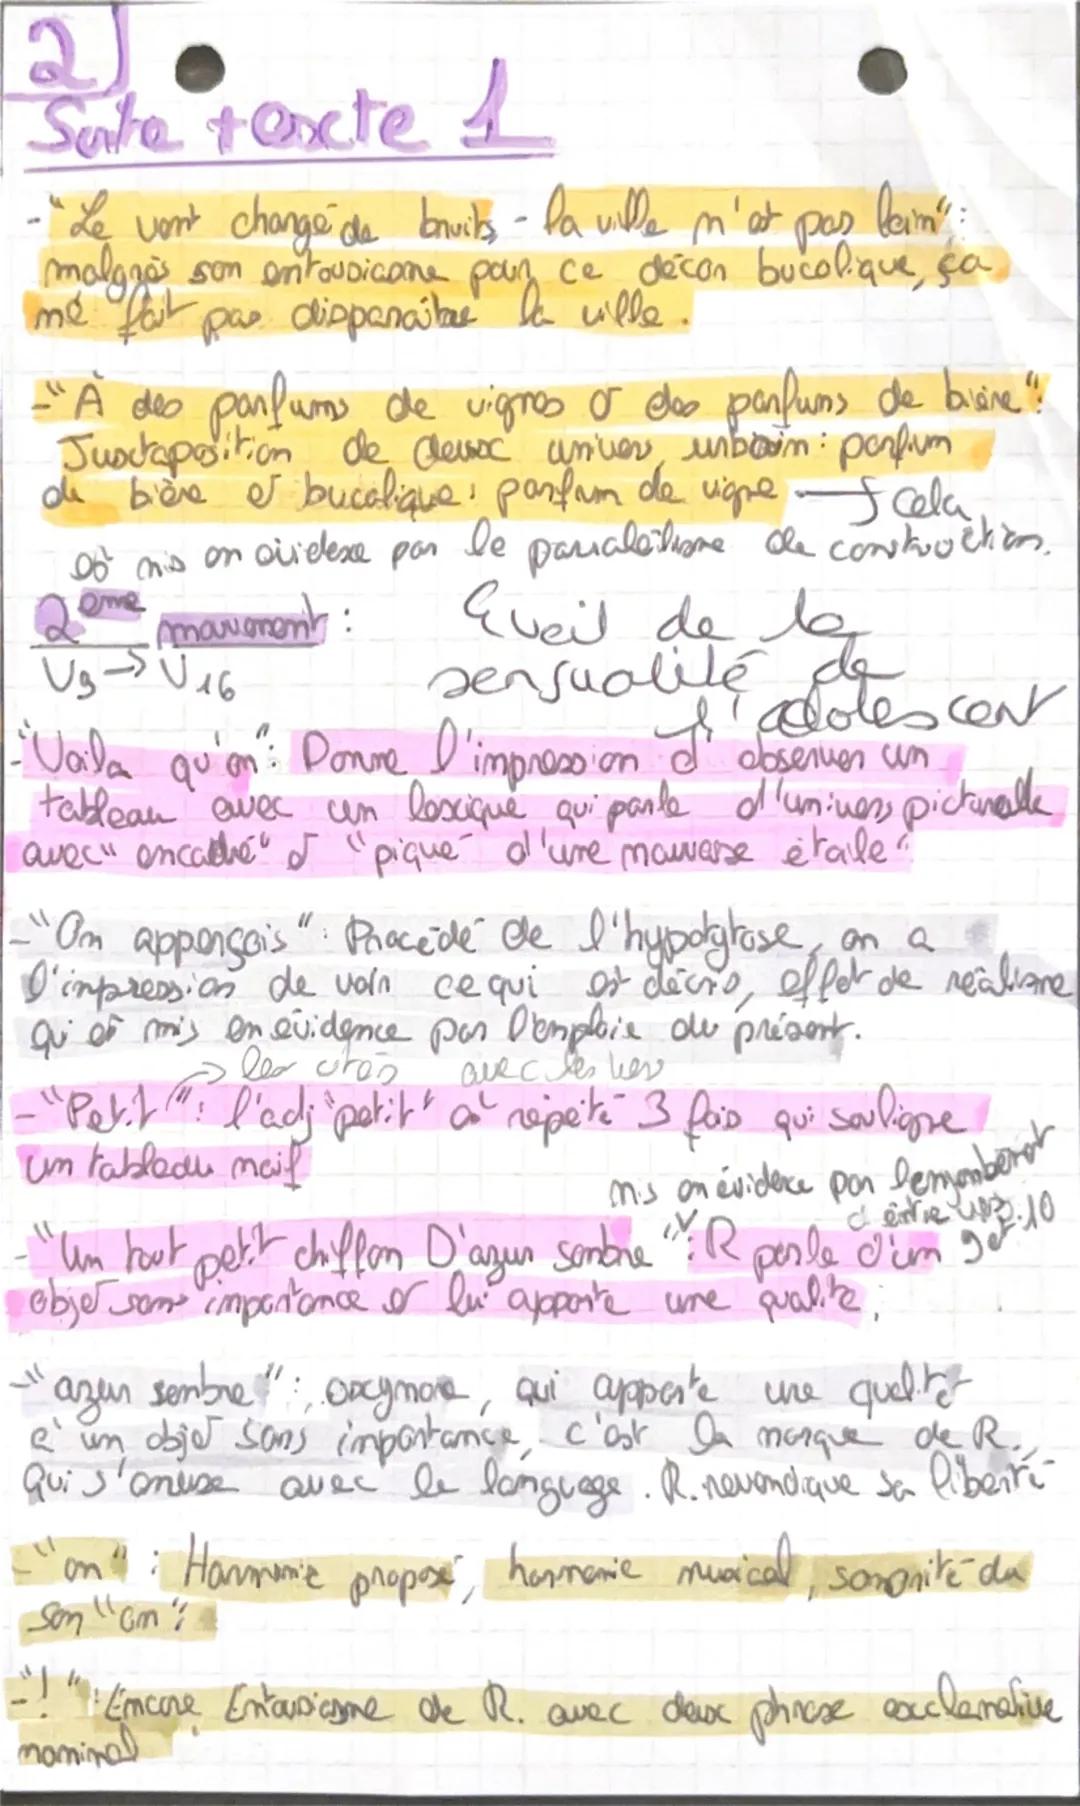 2)
Suite texcte 1
-"Le vent changé de bruits - la ville n'est pas loin":
malgrès son entousicame pour ce décor bucolique, ça
ne fait pas disparaître la ville.
-"À des parfums de vignes et des parfums de bière":
Juxtaposition de deux univers, urbain: parfum
de bière et bucolique: parfum de vigne → cela
est mis en évidexe par le paralélisme de construction.
2ème mouvement :
V9 → V16
Eveil de la
sensualité de
l'adolescent
-"Voila qu'on": Donne l'impression d'observer un
tableau avec un lexique qui parle d'univers picturalle
avec "encadré" et "piqué d'une mauvaise étoile".
-"On apperçois": Procédé de l'hypotytose, on a
l'impression de voir ce qui est décris, effet de réalisme
qui est mis en évidence par l'emploie du présent.
→ les avec les vers
-"Petit": l'adj "petit" est répeité 3 fois qui souligne
un tableau naif
mis en évidexe par
entre 9 et 10
-"Un tout petit chiffon D'azur sombre": R parle d'un
objet sans importance et lui apporte une qualité,
-"azur sombre": oxcymore, qui apporte une qualitét
a' un objet sans importance, c'est la marque de R.,
Qui s'amuse avec le language. R. revendique sa liberté
-"on" : Harmonie proposé, harmonie musical, sononité du
son "on".
-"!": Encore Entousiasme de R. avec deux phrase exclamative
nominal